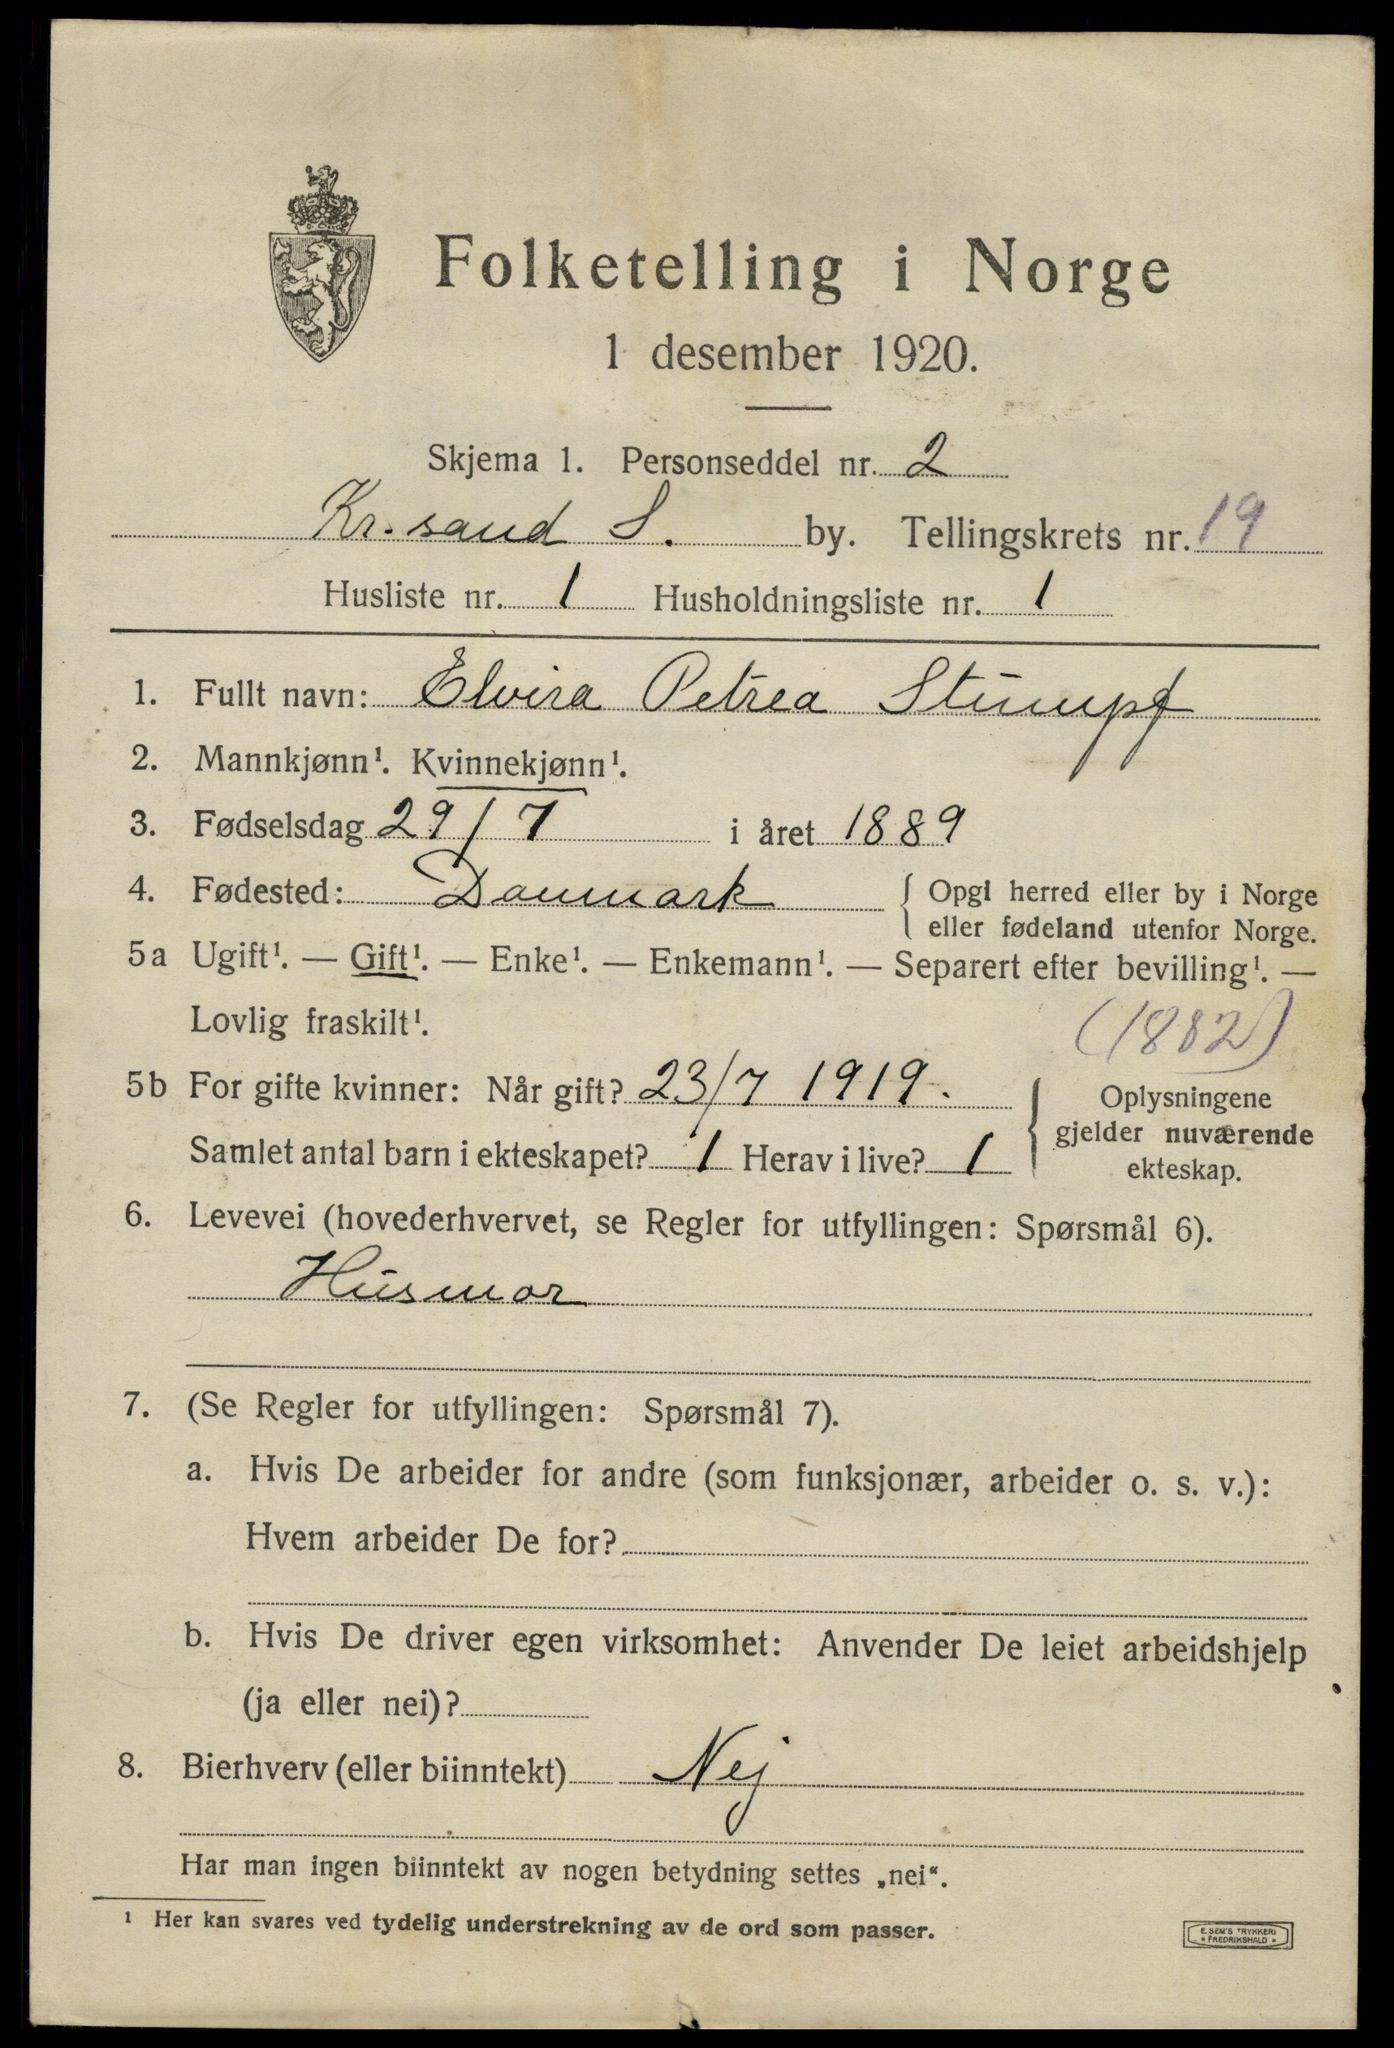 Folketelling i Norge
1 desember 1920.
Skjema 1. Personseddel nr. 2
Kr.sand S. by. Tellingskrets nr. 19
Husliste nr. 1 Husholdningsliste nr. 1
1. Fullt navn: Elvira Petrea Stumpf
2. Mannkjønn¹. Kvinnekjønn¹.
3. Fødselsdag 29/7 i året 1889
4. Fødested: Danmark { Opgi herred eller by i Norge
eller fødeland utenfor Norge.
5a Ugift¹. — Gift¹. — Enke¹. — Enkemann¹. — Separert efter bevilling¹. —
Lovlig fraskilt¹. (1882)
5b For gifte kvinner: Når gift? 23/7 1919. { Oplysningene
gjelder nuværende
Samlet antal barn i ekteskapet? 1 Herav i live? 1 ekteskap.
6. Levevei (hovederhvervet, se Regler for utfyllingen: Spørsmål 6).
Husmor
7. (Se Regler for utfyllingen: Spørsmål 7).
a. Hvis De arbeider for andre (som funksjonær, arbeider o. s. v.):
Hvem arbeider De for?
b. Hvis De driver egen virksomhet: Anvender De leiet arbeidshjelp
(ja eller nei)?
8. Bierhverv (eller biinntekt) Nej
Har man ingen biinntekt av nogen betydning settes „nei“.
¹ Her kan svares ved tydelig understrekning av de ord som passer.
E. SEM'S TRYKKERI
* FREDRIKSHALD *